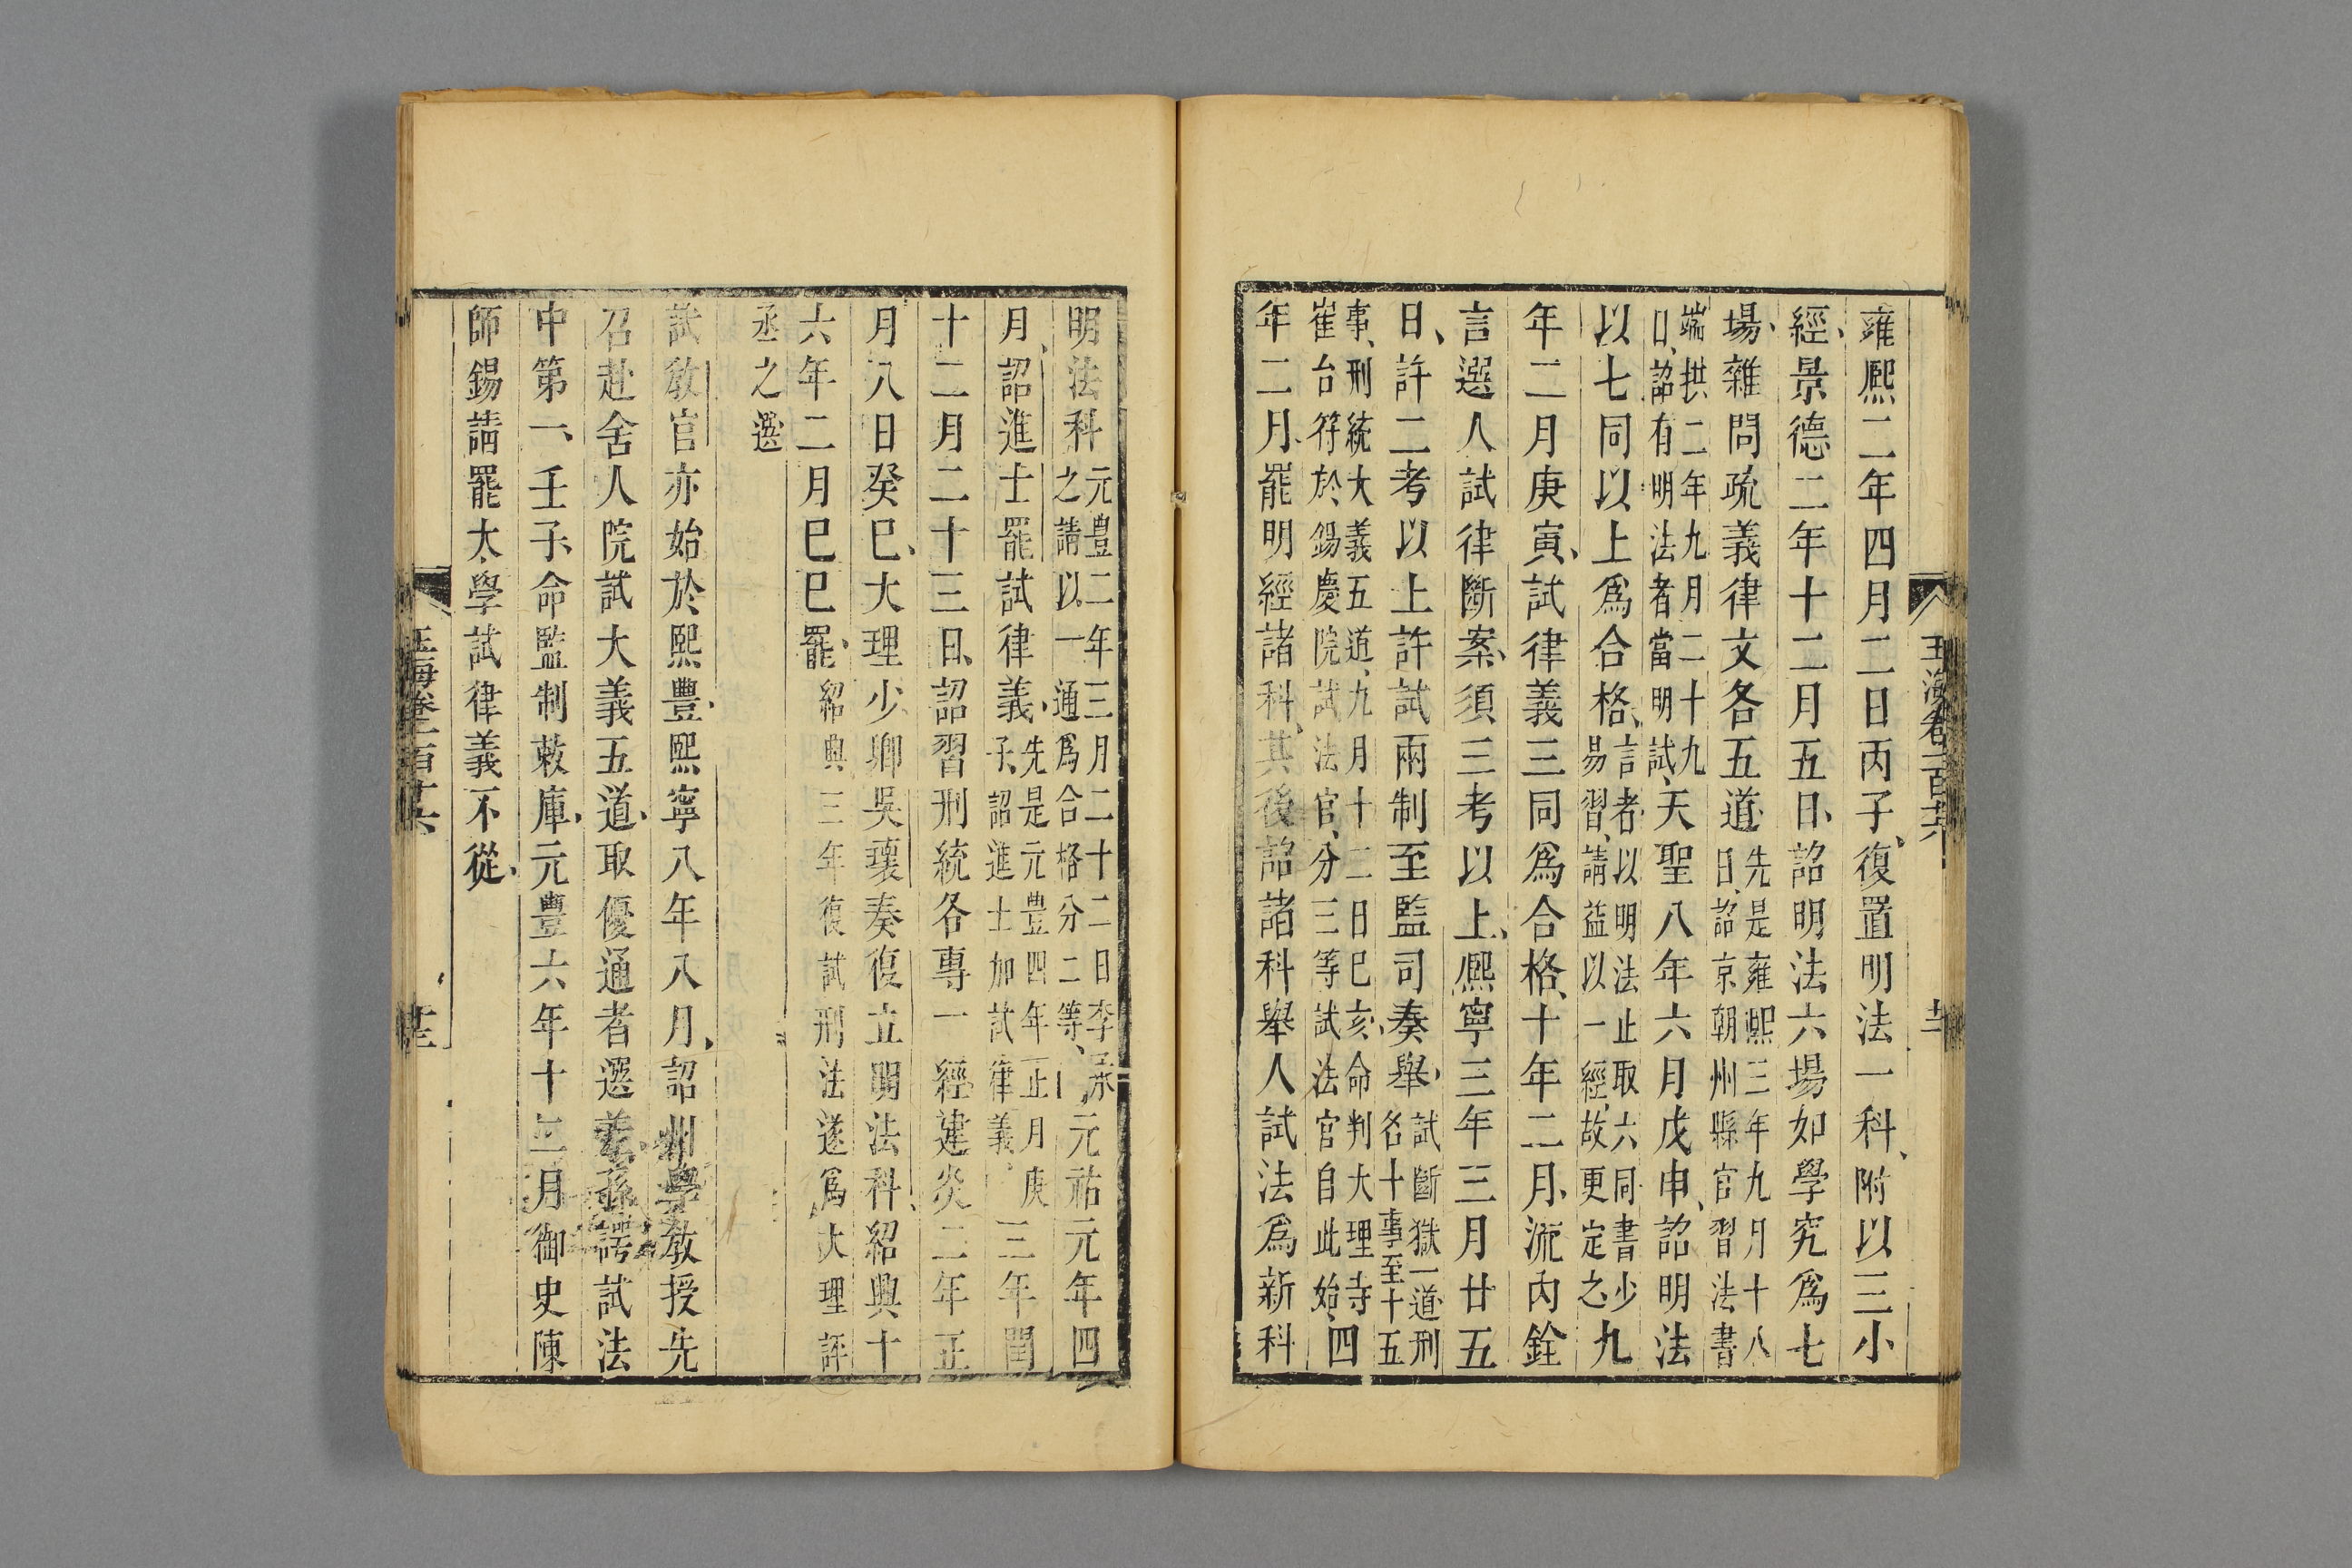 玉海卷一百十六
雍熙二年四月二日丙子、復置明法一科、附以三小
經、景德二年十二月五日、詔明法六場如學究爲七
場、雜問疏義律文各五道、先是雍熙三年九月十八
日、詔京朝州縣官習法書
端拱二年九月二十九
日、詔有明法者當明試、天聖八年六月戊申、詔明法
以七同以上爲合格、言者以明法止取六同書少
易習、請益以一經、故更定之、九
年二月庚寅、試律義三同爲合格、十年二月、流内銓
言選人試律斷案、須三考以上、熙寧三年三月廿五
日、許二考以上許試兩制至監司奏舉、試斷獄一道刑
名十事至十五
事、刑統大義五道、九月十二日巳亥、命判大理寺
崔台符於錫慶院試法官、分三等試法官自此始、四
年二月、罷明經諸科、其後詔諸科舉人試法爲新科
明法科元豊二年三月二十二日李承
之請以一通爲合格分二等、元祐元年四
月、詔進士罷試律義、先是元豊四年正月庚
子、詔進士加試律義、三年閏
十二月二十三日、詔習刑統各專一經建炎二年正
月八日癸巳、大理少卿吳瓌奏復立明法科、紹興十
六年二月巳巳罷、紹興三年復試刑法遂爲大理評
丞之選
試教官亦始於熙豊、熙寧八年八月、詔州學教授先
召赴舍人院試大義五道、取優通者選差、孫諤試法
中第一、壬子、命監制敕庫、元豊六年十二月御史陳
師錫請罷太學試律義不從、
玉海卷一百十六